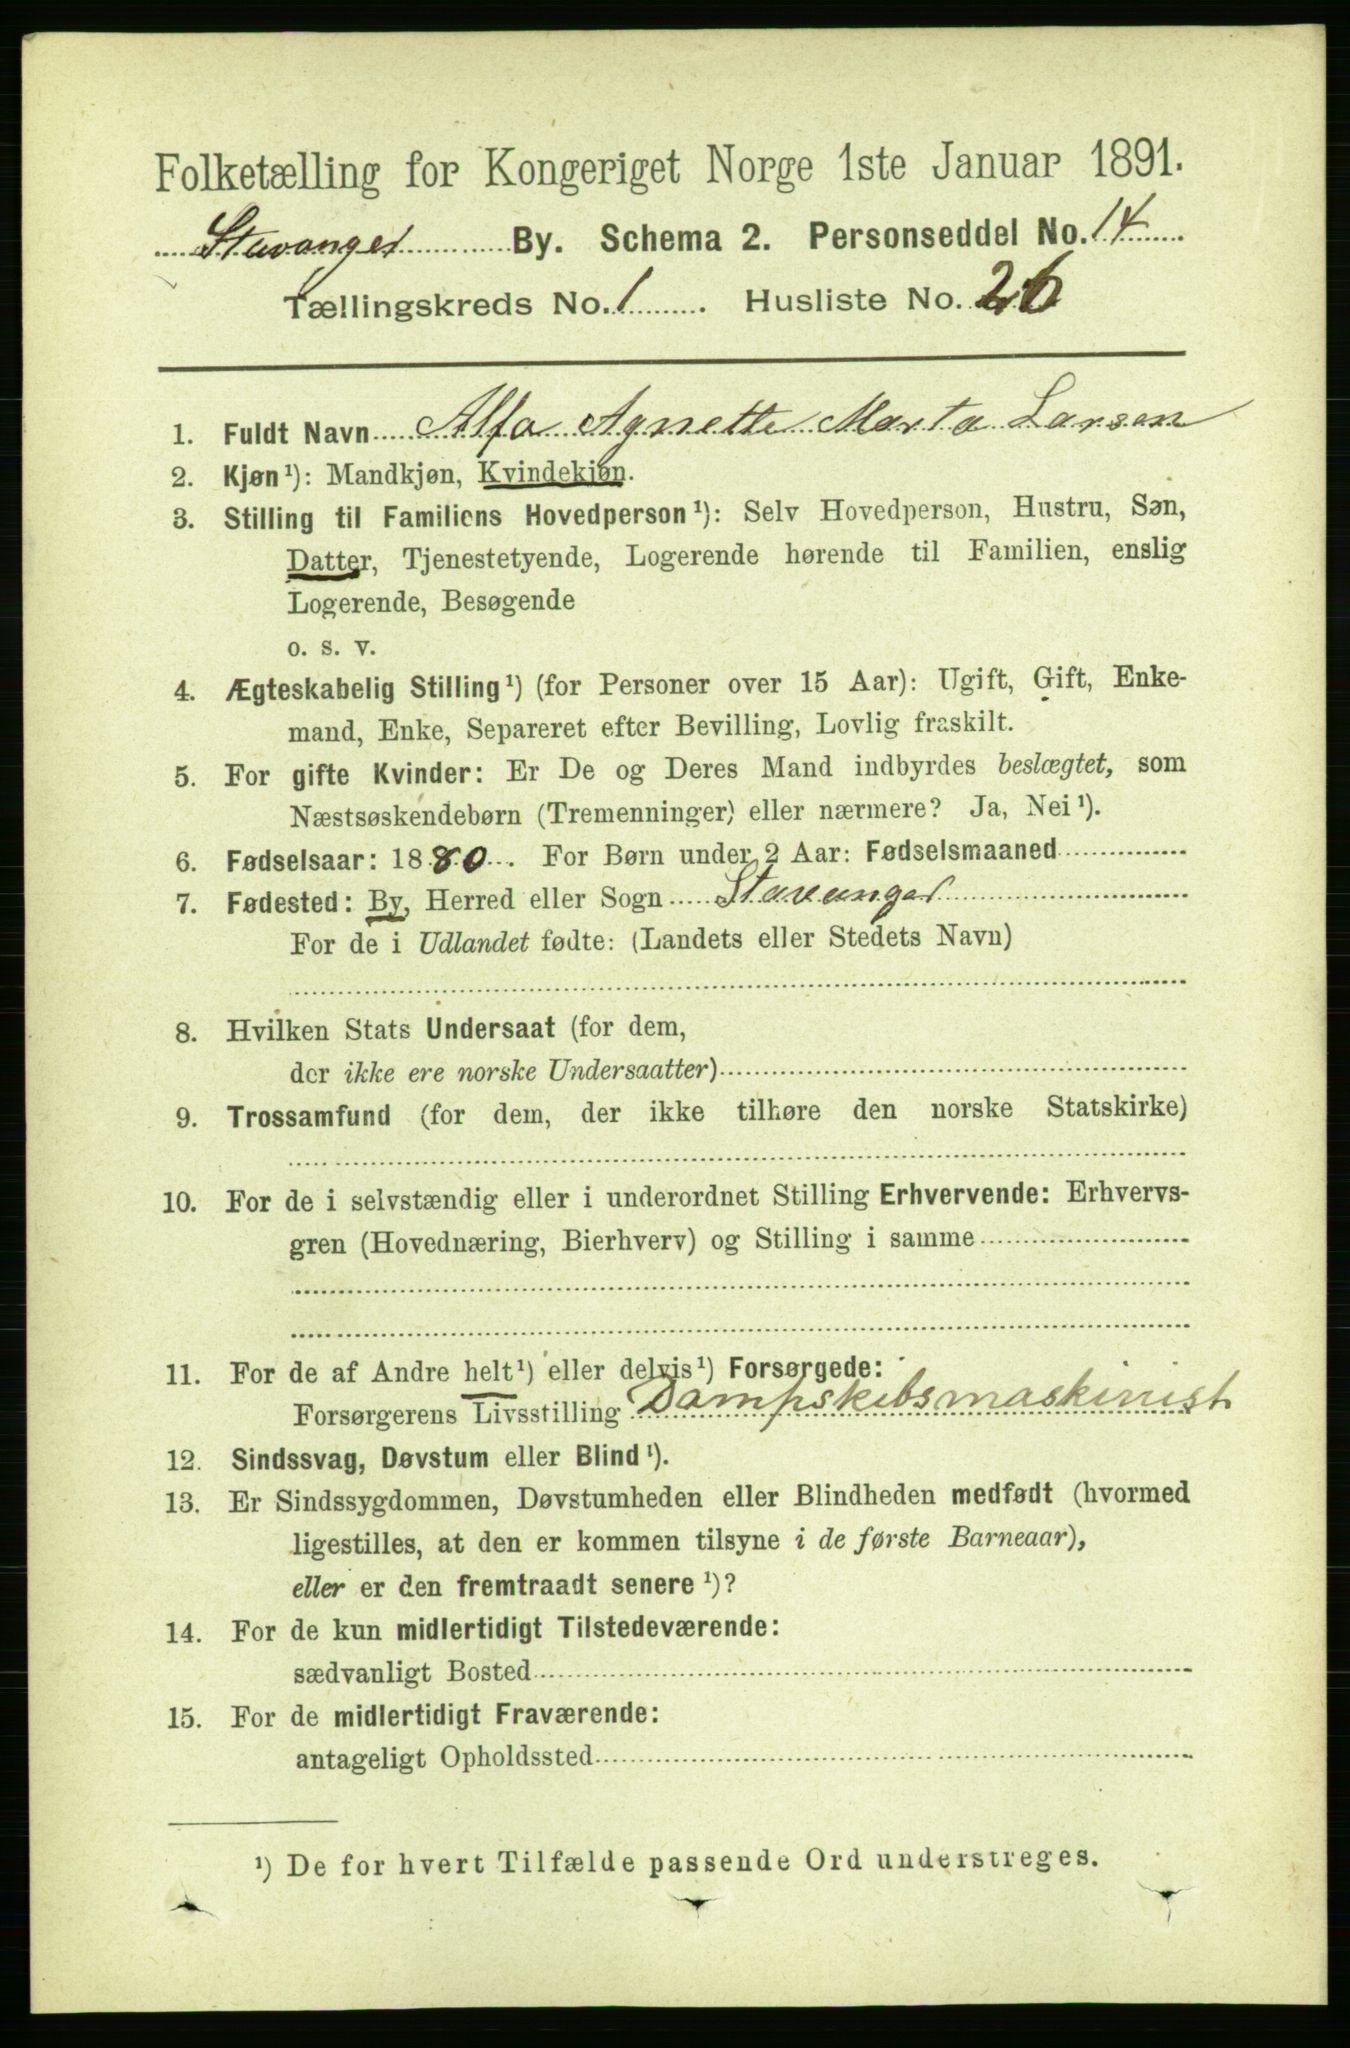 Folketælling for Kongeriget Norge 1ste Januar 1891.
Stavanger By. Schema 2. Personseddel No. 14
Tællingskreds No. 1. Husliste No. 26
1. Fuldt Navn Alfa Agnette Marta Larsen
2. Kjøn¹): Mandkjøn, Kvindekjøn.
3. Stilling til Familiens Hovedperson¹): Selv Hovedperson, Hustru, Søn,
Datter, Tjenestetyende, Logerende hørende til Familien, enslig
Logerende, Besøgende
o. s. v.
4. Ægteskabelig Stilling¹) (for Personer over 15 Aar): Ugift, Gift, Enke-
mand, Enke, Separeret efter Bevilling, Lovlig fraskilt.
5. For gifte Kvinder: Er De og Deres Mand indbyrdes beslægtet, som
Næstsøskendebørn (Tremenninger) eller nærmere? Ja, Nei¹).
6. Fødselsaar: 1880. For Børn under 2 Aar: Fødselsmaaned
7. Fødested: By, Herred eller Sogn Stavanger
For de i Udlandet fødte: (Landets eller Stedets Navn)
8. Hvilken Stats Undersaat (for dem,
der ikke ere norske Undersaatter)
9. Trossamfund (for dem, der ikke tilhøre den norske Statskirke)
10. For de i selvstændig eller i underordnet Stilling Erhvervende: Erhvervs-
gren (Hovednæring, Bierhverv) og Stilling i samme
11. For de af Andre helt¹) eller delvis¹) Forsørgede:
Forsørgerens Livsstilling Dampskibsmaskinist
12. Sindssvag, Døvstum eller Blind¹).
13. Er Sindssygdommen, Døvstumheden eller Blindheden medfødt (hvormed
ligestilles, at den er kommen tilsyne i de første Barneaar),
eller er den fremtraadt senere¹)?
14. For de kun midlertidigt Tilstedeværende:
sædvanligt Bosted
15. For de midlertidigt Fraværende:
antageligt Opholdssted
¹) De for hvert Tilfælde passende Ord understreges.